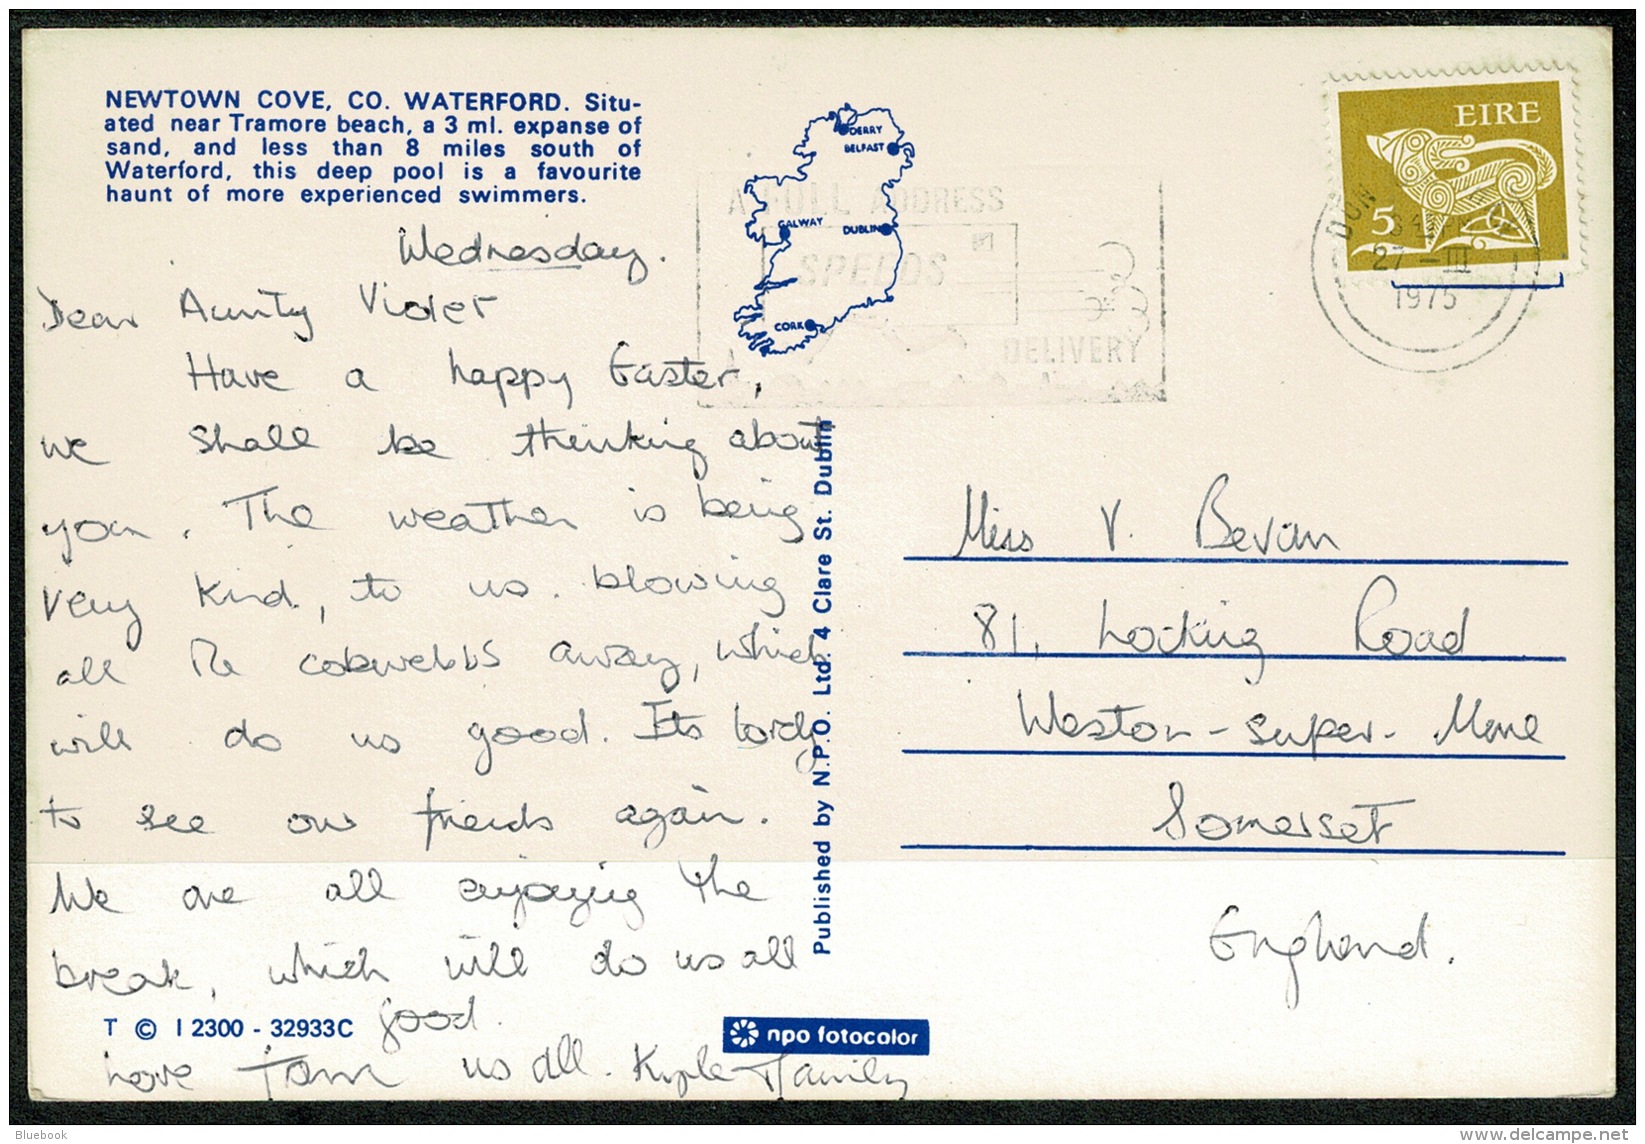 NEWTOWN COVE, CO. WATERFORD. Situ-
ated near Tramore beach, a 3 ml. expanse of
sand, and less than 8 miles south of
Waterford, this deep pool is a favourite
haunt of more experienced swimmers.
Wednesday.
Dear Aunty Violet
Have a happy Easter,
we shall be thinking about
you. The weather is being
very kind, to us. blowing
all the cobwebbs away, which
will do us good. Its lovely
to see our friends again.
We are all enjoying the
break, which will do us all
good.
Love from us all. Kyle Family
T © I 2300 - 32933C
npo fotocolor
Published by N.P.O. Ltd. 4 Clare St. Dublin
DERRY
BELFAST
GALWAY
DUBLIN
CORK
A FULL ADDRESS
SPEEDS
DELIVERY
EIRE
5
DUN
27 - III
1975
Miss V. Bevan
81, Locking Road
Weston-super-Mare
Somerset
England.
Bluebook
delcampe.net